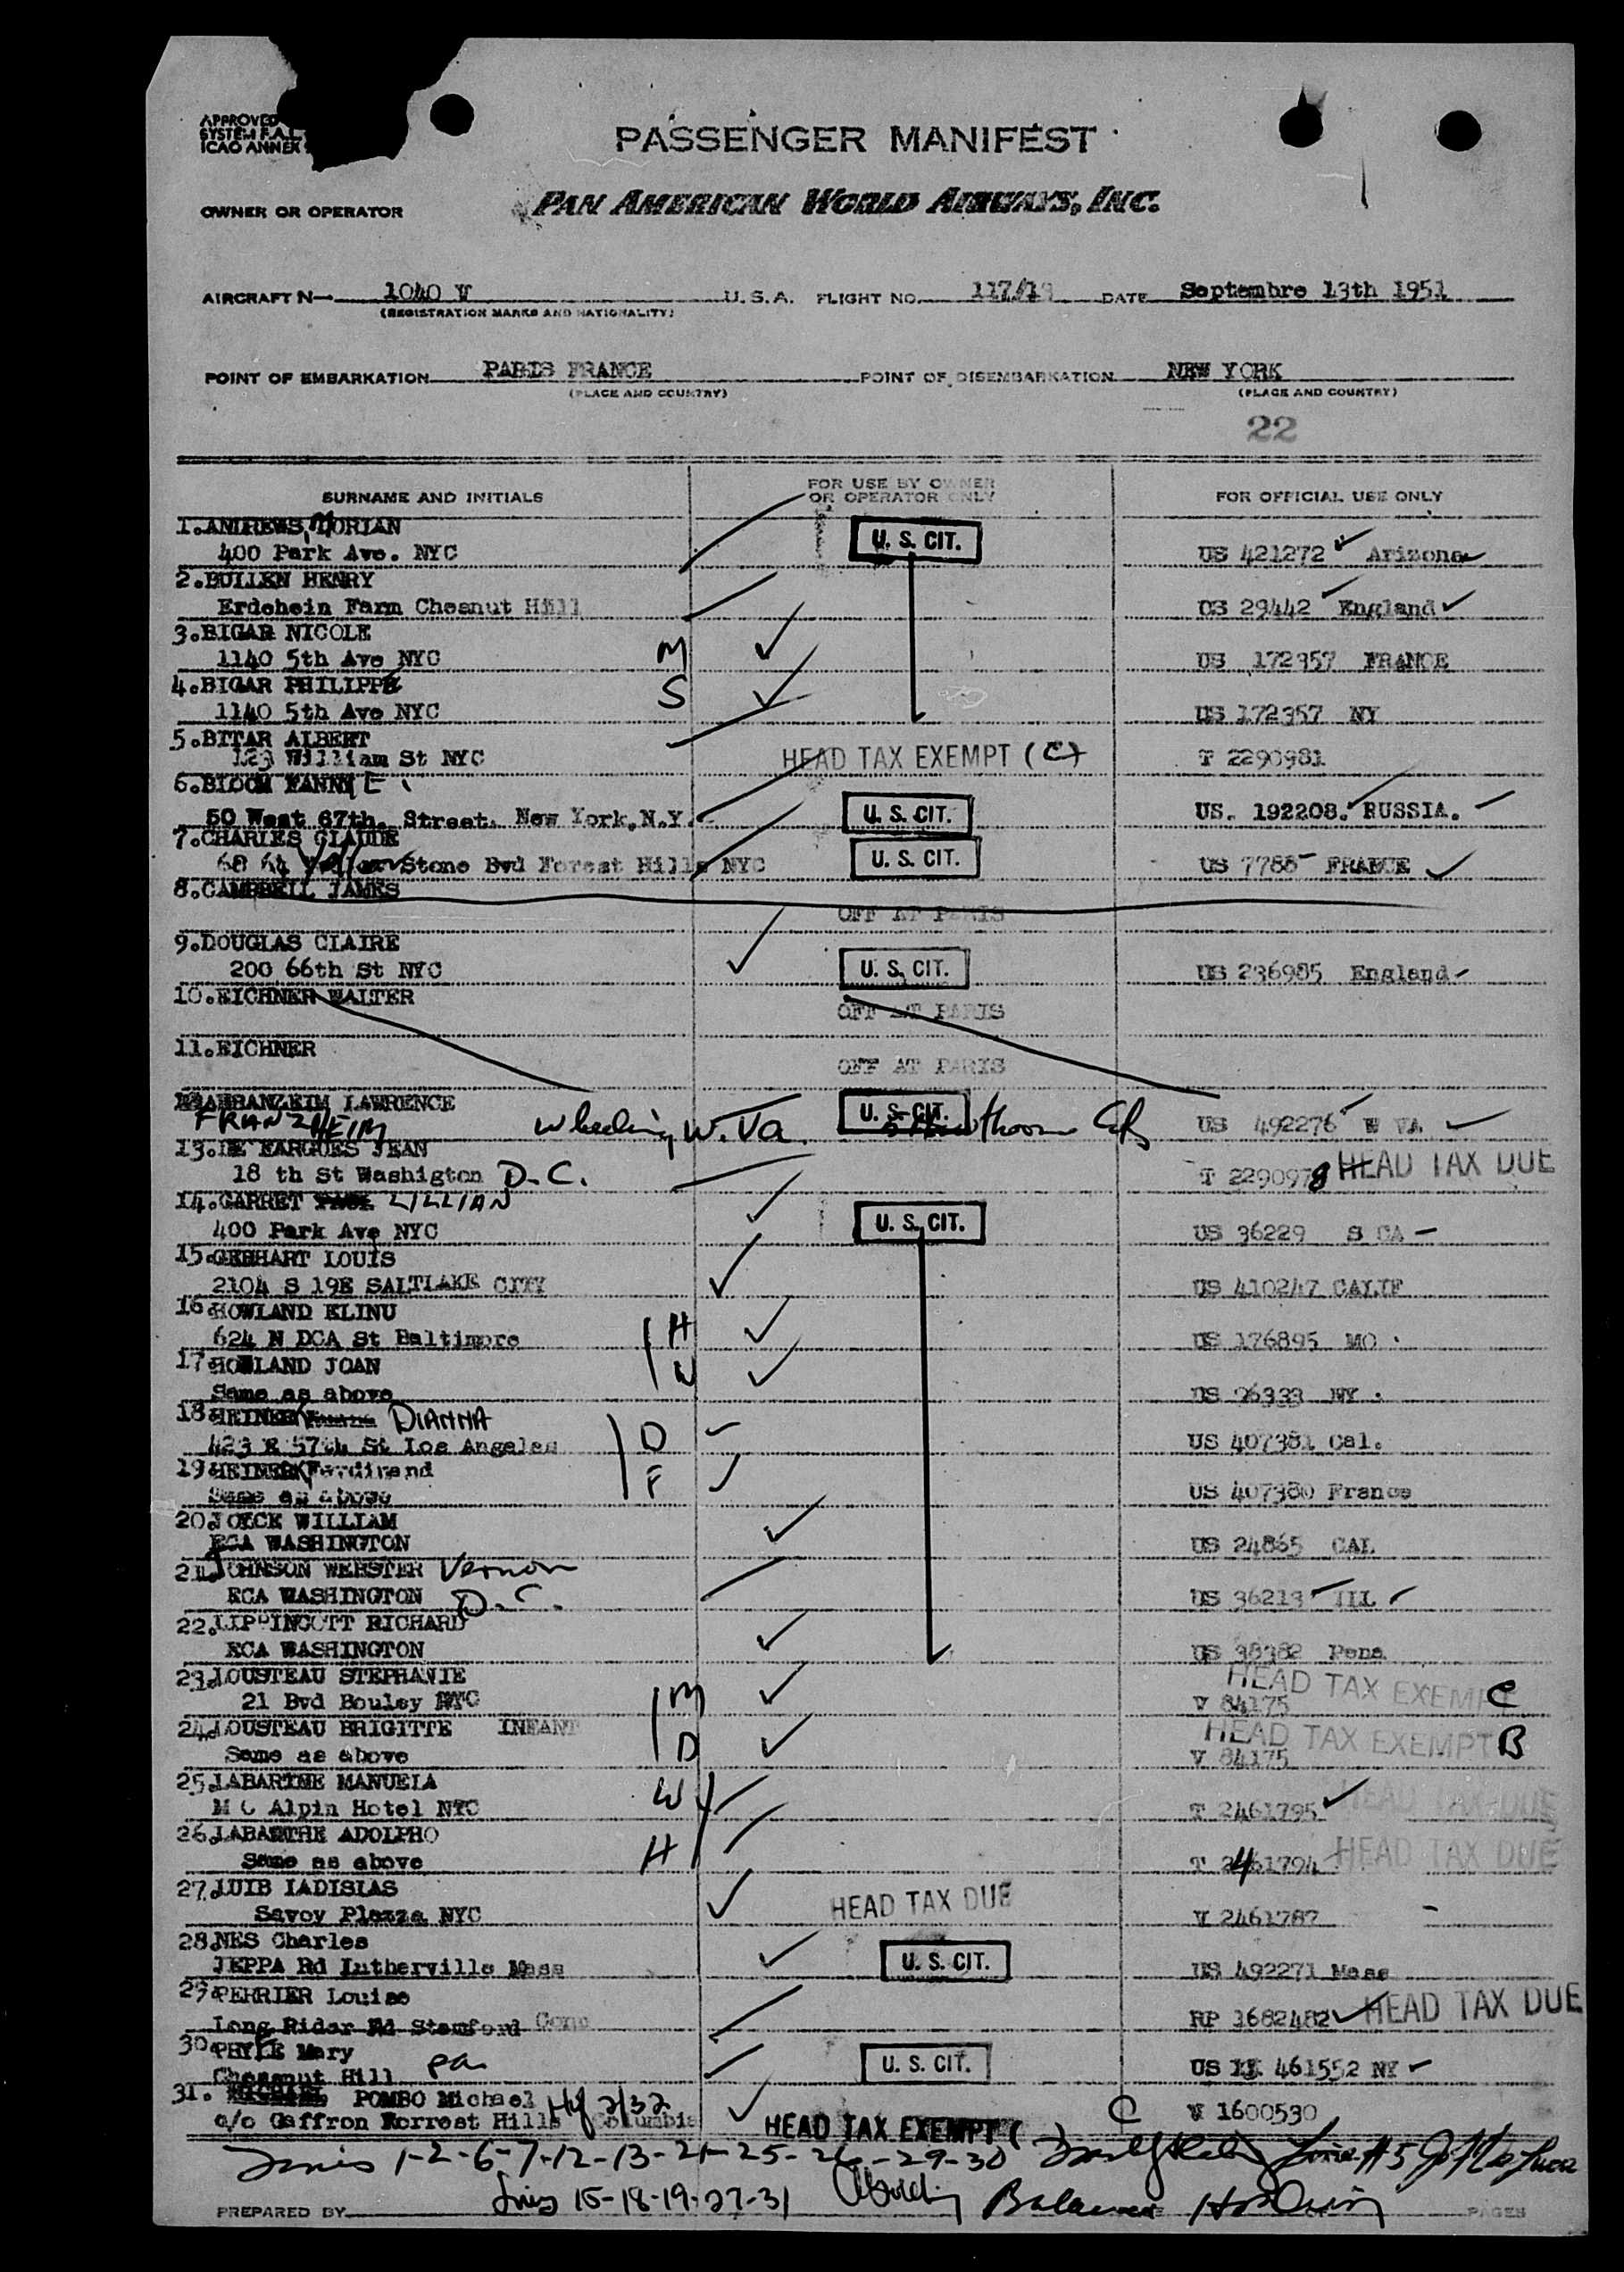 APPROVED
SYSTEM F.A.L.
ICAO ANNEX
PASSENGER MANIFEST
OWNER OR OPERATOR PAN AMERICAN WORLD AIRWAYS, INC.
AIRCRAFT N— 1040 V U.S.A. FLIGHT NO. 117/13 DATE Septembre 13th 1951
(REGISTRATION MARKS AND NATIONALITY)
POINT OF EMBARKATION PARIS FRANCE POINT OF DISEMBARKATION NEW YORK
(PLACE AND COUNTRY) (PLACE AND COUNTRY)
22
SURNAME AND INITIALS FOR USE BY OWNER OR OPERATOR ONLY FOR OFFICIAL USE ONLY
1.ANDREWS, DORIAN
400 Park Ave. NYC U. S. CIT. US 421272 Arizona
2.BULLEN HENRY
Erdehein Farm Chesnut Hill US 29442 England
3.BIGAR NICOLE
1140 5th Ave NYC M US 172357 FRANCE
4.BIGAR PHILIPPE
1140 5th Ave NYC S US 172357 NY
5.BITAR ALBERT
123 William St NYC HEAD TAX EXEMPT (C) T 2290981
6.BLOCH FANNIE
50 West 67th. Street. New York,N.Y. U. S. CIT. US. 192208. RUSSIA.
7.CHARLES CLAUDE
68 64 Yellow Stone Bvd Forest Hills NYC U. S. CIT. US 7788 FRANCE
8.CAMPBELL JAMES
OFF AT PARIS
9.DOUGLAS CLAIRE
200 66th St NYC U. S. CIT. US 236985 England
10.EICHNER WALTER
OFF AT PARIS
11.EICHNER
OFF AT PARIS
LAWRENCE
FRANZHEIM Wheeling W. Va. U. S. CIT. US 492276 W VA
13.DE FARGUES JEAN
18 th St Washigton D.C. T 2290978 HEAD TAX DUE
14.GARRET LILLIAN
400 Park Ave NYC U. S. CIT. US 36229 S CA
15.GEBHART LOUIS
2104 S 19E SALTLAKE CITY US 410247 CALIF
16.HOWLAND ELINU
624 N DCA St Baltimore H US 176895 MO
17.HOWLAND JOAN
Same as above W US 26333 NY
18.HEINER DIANNA
423 E 57th St Los Angeles D US 407381 Cal.
19.HEINER Ferdinand
Same as above F US 407380 France
20.JOECK WILLIAM
ECA WASHINGTON US 24865 CAL
21.JOHNSON WEBSTER Vernon
ECA WASHINGTON D.C. US 36213 ILL
22.LIPPINCOTT RICHARD
ECA WASHINGTON US 38382 Pena
23.LOUSTEAU STEPHANIE HEAD TAX EXEMPT C
21 Bvd Bouley NYC M V 84175
24.LOUSTEAU BRIGITTE INFANT HEAD TAX EXEMPT B
Same as above D V 84175
25.LABARTHE MANUELA
M C Alpin Hotel NYC W T 2461795 HEAD TAX DUE
26.LABARTHE ADOLPHO
Same as above H T 2461794 HEAD TAX DUE
27.LUIB LADISLAS
Savoy Plazza NYC HEAD TAX DUE V 2461787
28.NES Charles
JEPPA Rd Lutherville Mass U. S. CIT. US 492271 Mass
29.PERRIER Louise
Long Rider Rd Stamford Conn RP 1682482 HEAD TAX DUE
30.PHYLE Mary
Chesnut Hill Pa U. S. CIT. US 461552 NY
31. POMBO Michael
c/o Gaffron Forrest Hills Columbia HEAD TAX EXEMPT ( C V 1600530
Lines 1-2-6-7-12-13-21-25-26-29-30 Line #5
Lines 15-18-19-27-31 Balance
PREPARED BY PAGES